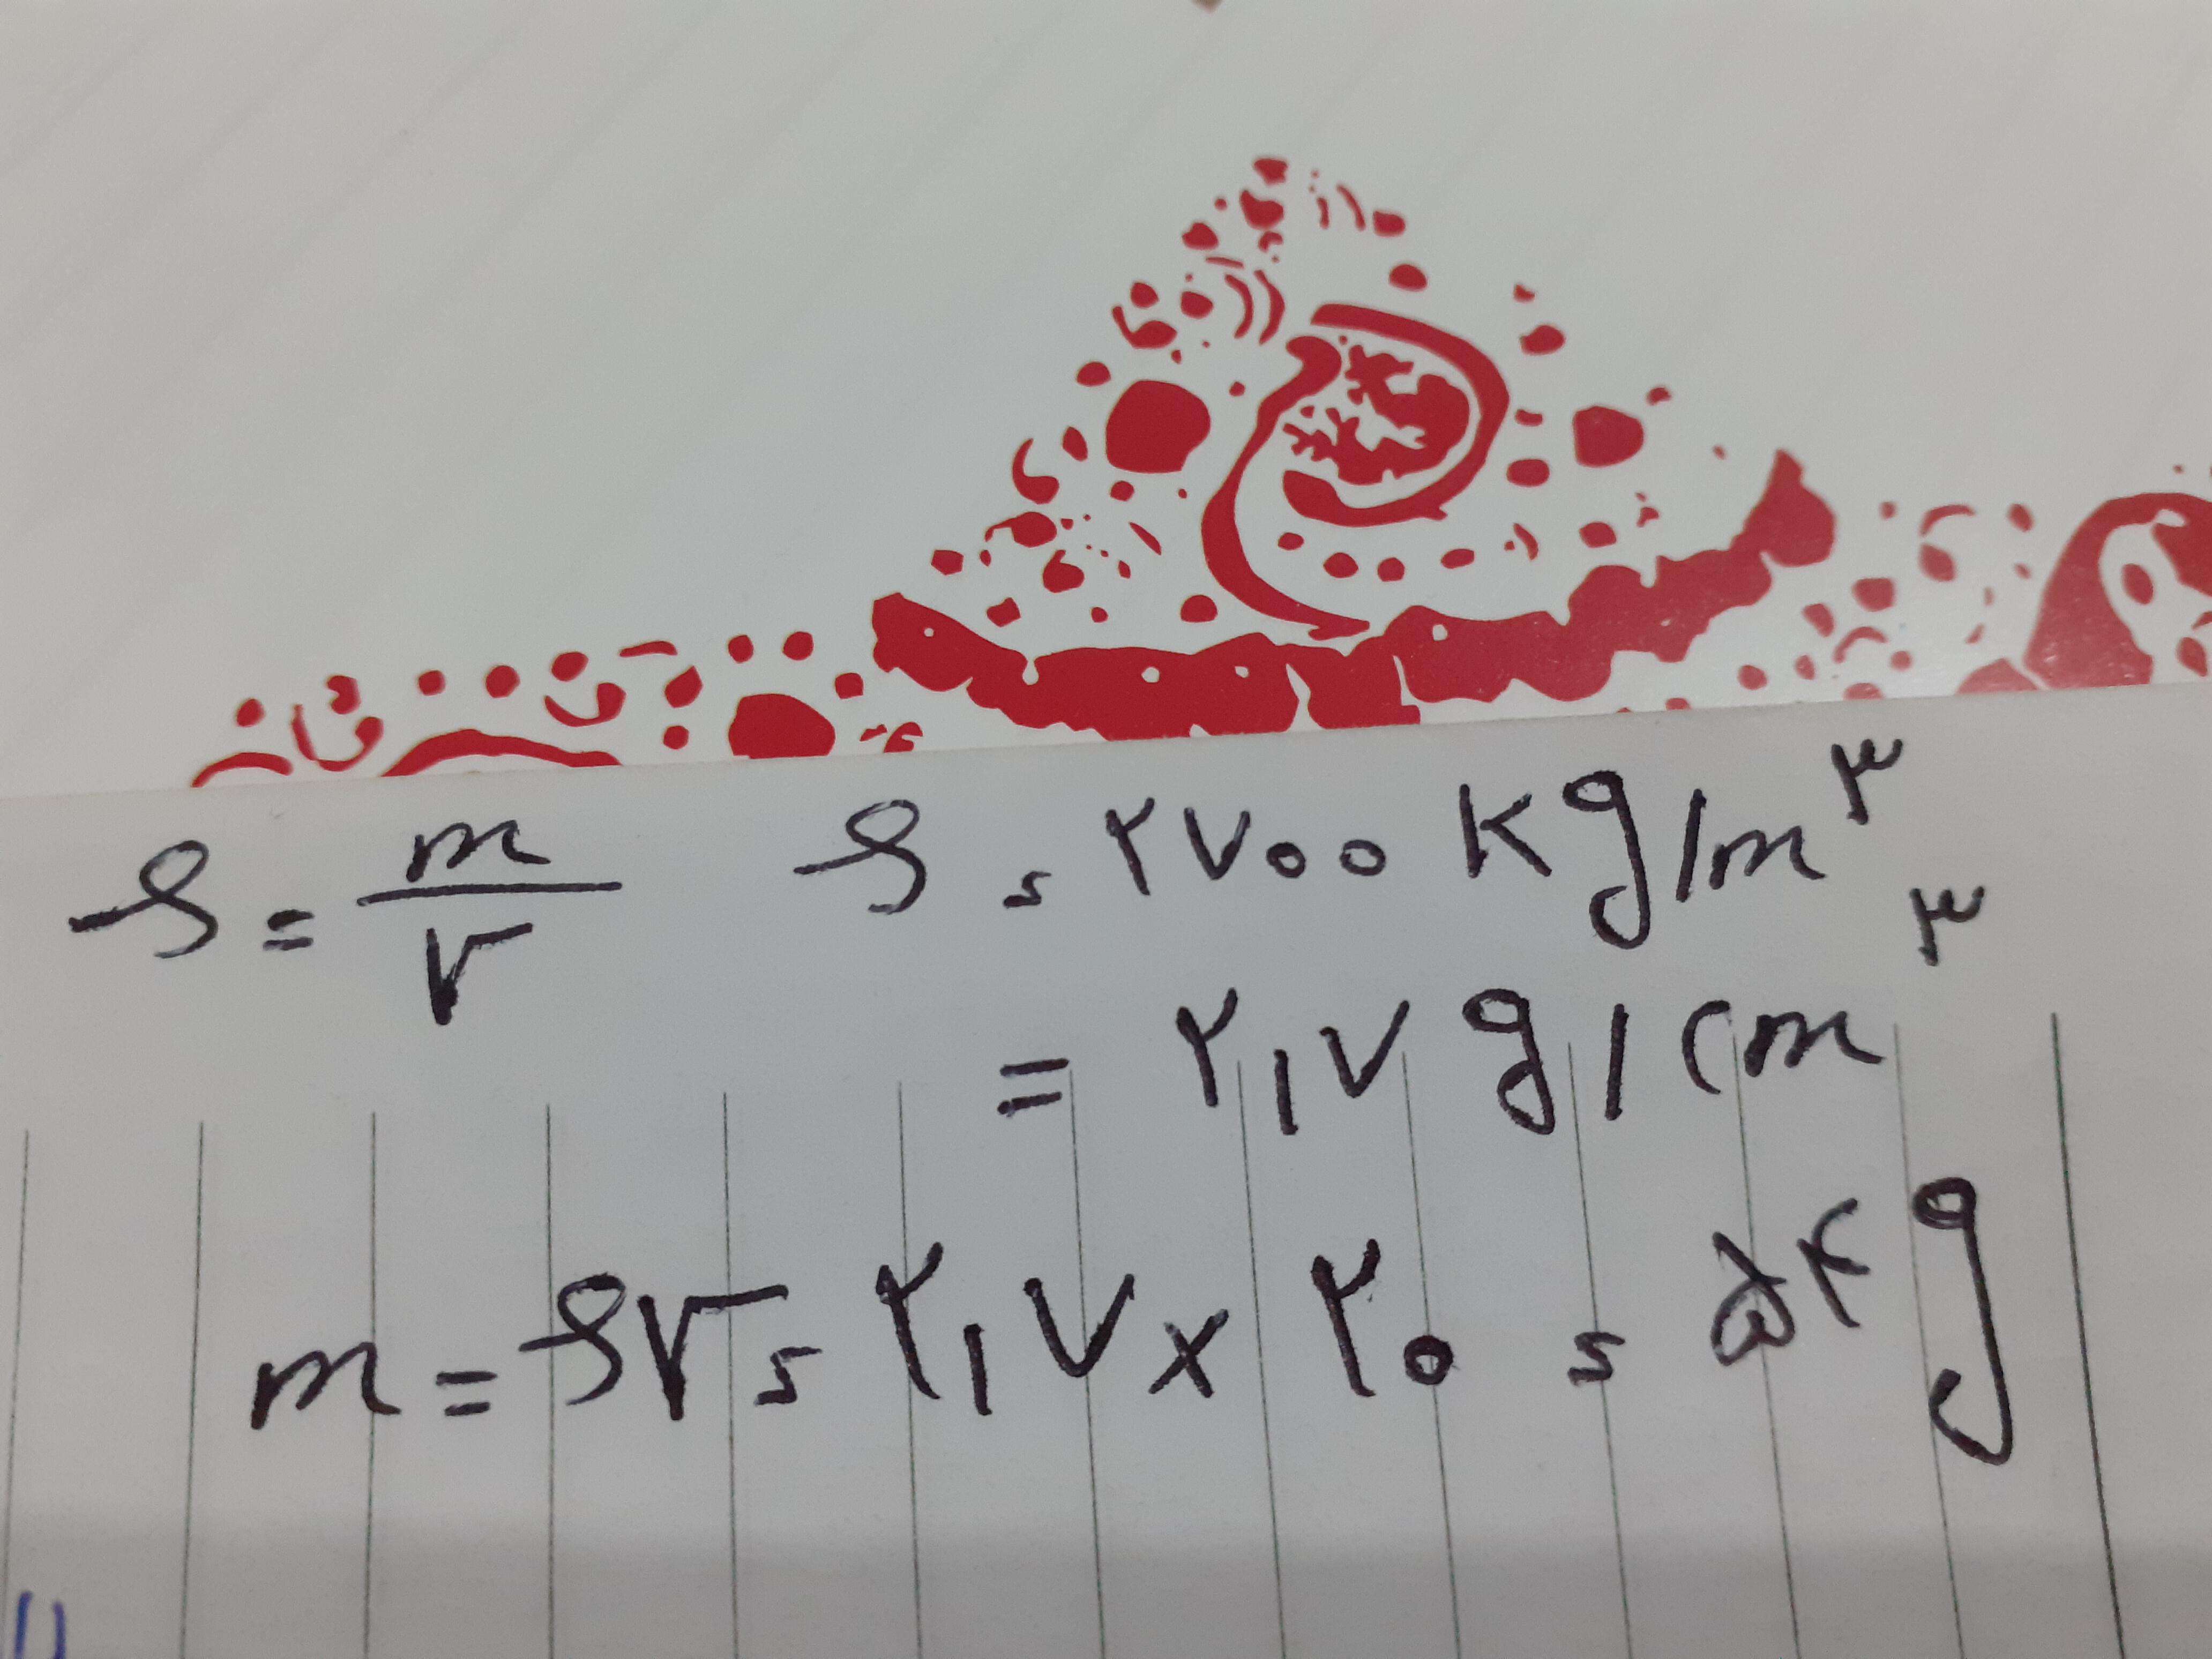 ρ = m/V ρ = ۲۷۰۰ kg/m³
= ۲,۷ g/cm³
m = ρV = ۲,۷ × ۲۰ = ۵۴ g